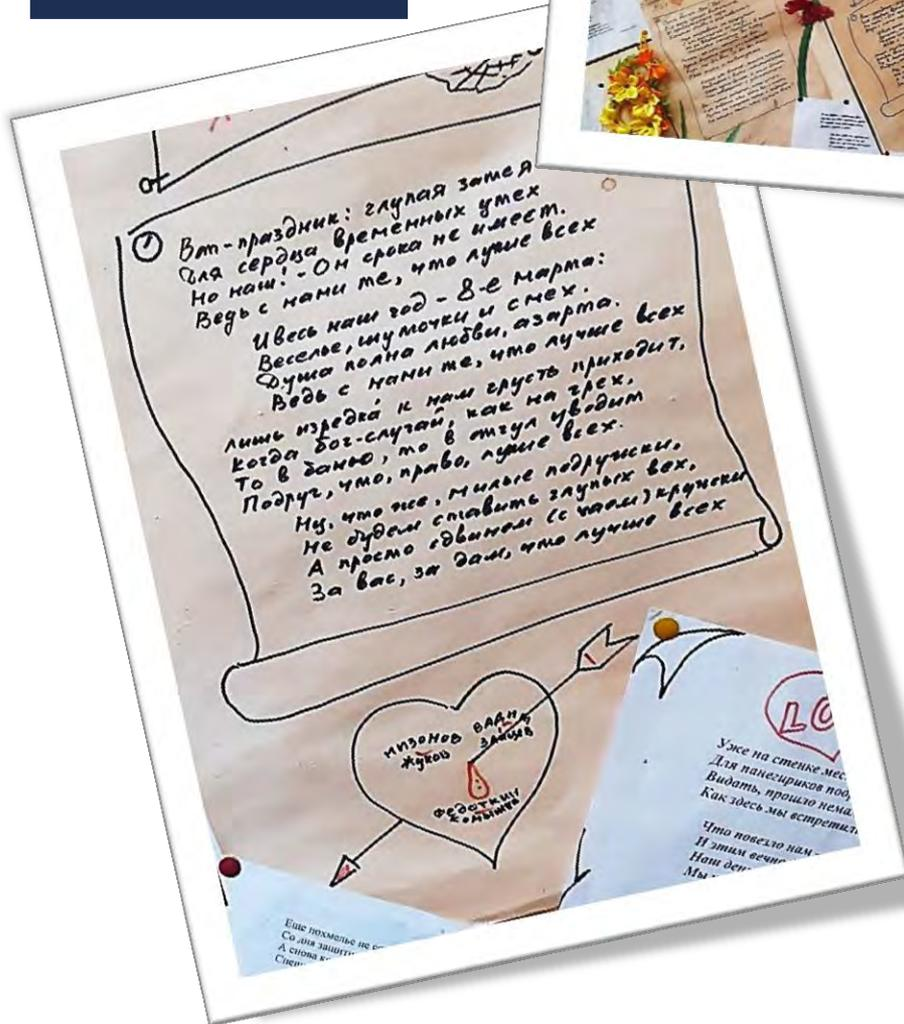 Вот-праздник: глупая затея
Для сердца временных утех
Но наш! - Он срока не имеет.
Ведь с нами те, что лучше всех
И весь наш год - 8-е марта:
Веселье, шуточки и смех.
Душа полна любви, азарта.
Ведь с нами те, что лучше всех
Лишь изредка к нам грусть приходит,
Когда бог-случай, как на грех,
То в баню, то в отгул уводит
Подруг, что, право, лучше всех.
Ну, что же, милые подружки,
Не будем ставить глупых вех,
А просто сдвинем (с чаем) кружки
За вас, за дам, что лучше всех
Мизонов
Жуков
Зайцев
Федоткин
LO
Уже на стенке мес
Для панегириков
Видать, прошло нема
Как здесь мы встретил
Что повезло нам
И этим вечн
Наш ден
Мы
Еще похмелье не
Со дня защит
А снова